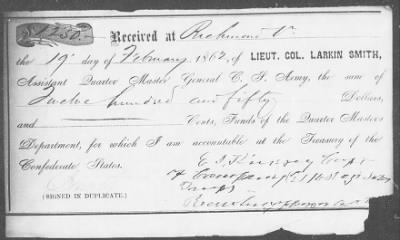 $1250.—
Received at Richmond Va
the 19 day of February 1862, of LIEUT. COL. LARKIN SMITH,
Assistant Quarter Master General C. S. Army, the sum of
Twelve hundred and fifty Dollars,
and Cents, Funds of the Quarter Masters
Department, for which I am accountable at the Treasury of the
Confederate States.
(SIGNED IN DUPLICATE.)